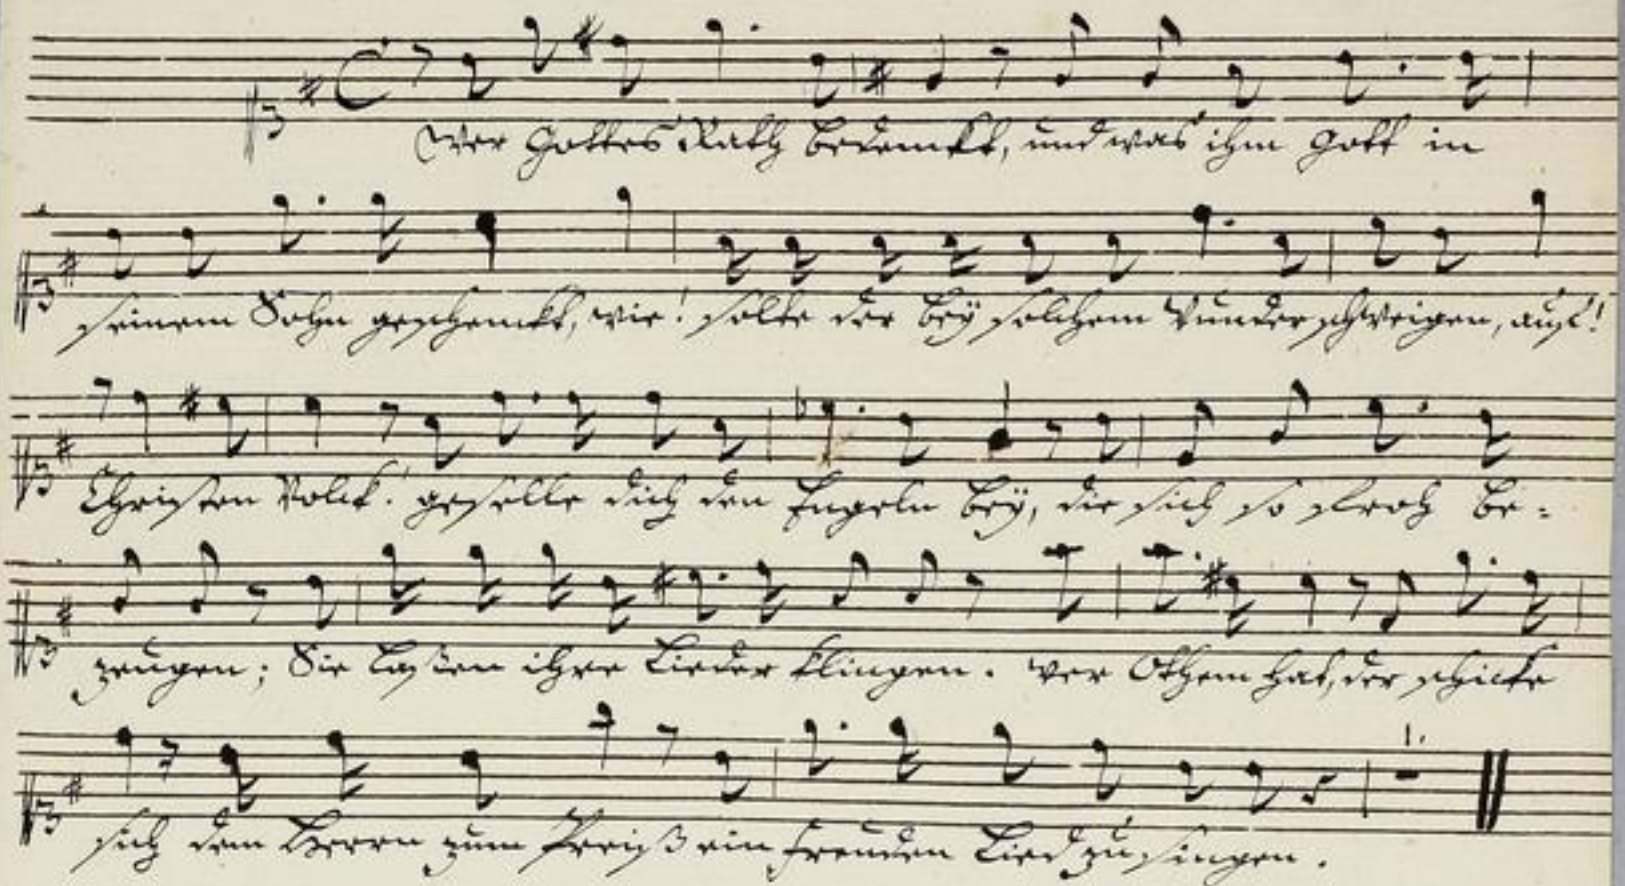 Wer Gottes Rath bedenckt, und was ihm Gott in
seinem Sohn geschenckt, wie! solte der bey solchem Wunder schweigen, auf!
Christen Volck! geselle dich den Engeln bey, die sich so froh be-
zeugen; Sie laßen ihre Lieder klingen. wer Othem hat, der schicke
sich dem Herrn zum Preiß ein Freuden Lied zu singen.